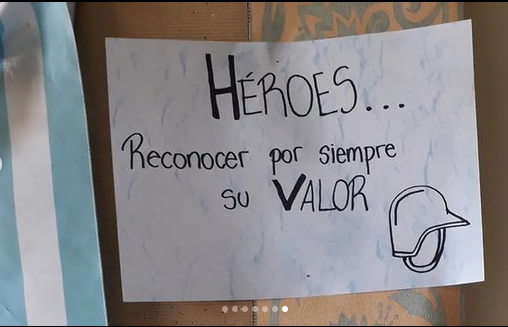 HÉROES...
Reconocer por siempre
su VALOR